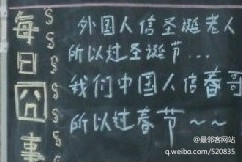 每日囧事
外国人信圣诞老人
所以过圣诞节...
我们中国人信春哥
所以过春节~~
@最邻客网站
q.weibo.com/520835